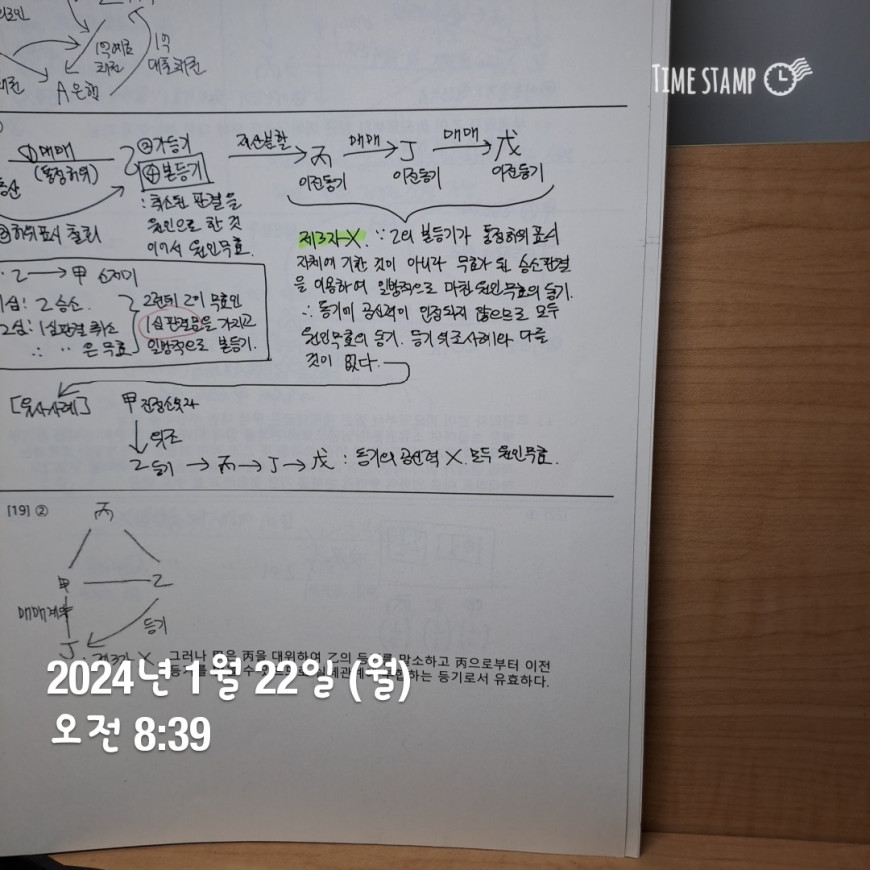 TIME STAMP
1억 대출
A은행
①매매
(통정허위)
②가등기
④본등기
: 취소된 판결을
원인으로 한 것
이어서 원인무효.
재산분할
丙 매매 丁 매매 戊
이전등기 이전등기 이전등기
제3자 X. ∵ 乙의 본등기가 통정허위표시
자체에 기한 것이 아니라 무효가 된 승소판결
을 이용하여 일방적으로 마친 원인무효의 등기.
∴ 등기에 공신력이 인정되지 않으므로 모두
원인무효의 등기. 등기위조사례와 다를
것이 없다.
乙 → 甲
1심: 乙 승소.
2심: 1심판결 취소
∴ 〃 은 무효
2년뒤 乙이 무효인
1심 판결문을 가지고
일방적으로 본등기.
[유사사례]
甲 진정소유자
↓ 위조
乙 등기 → 丙 → 丁 → 戊 : 등기의 공신력 X. 모두 원인무효.
[19] ②
丙
甲 乙
매매계약
등기
丁
그러나 丁은 丙을 대위하여 乙의 등기를 말소하고 丙으로부터 이전
하는 등기로서 유효하다.
2024년 1월 22일 (월)
오전 8:39